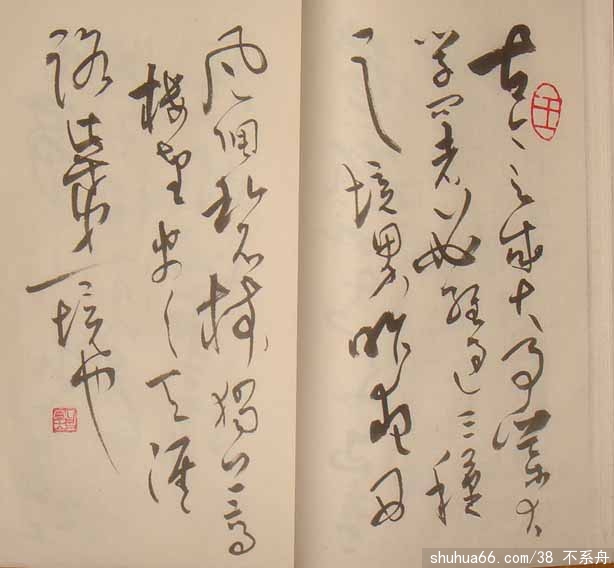 古今之成大事業大
学问者必经过三種
之境界昨夜西
风凋碧树獨上高
楼望尽天涯
路此第一境也
shuhua66.com/38 不系舟